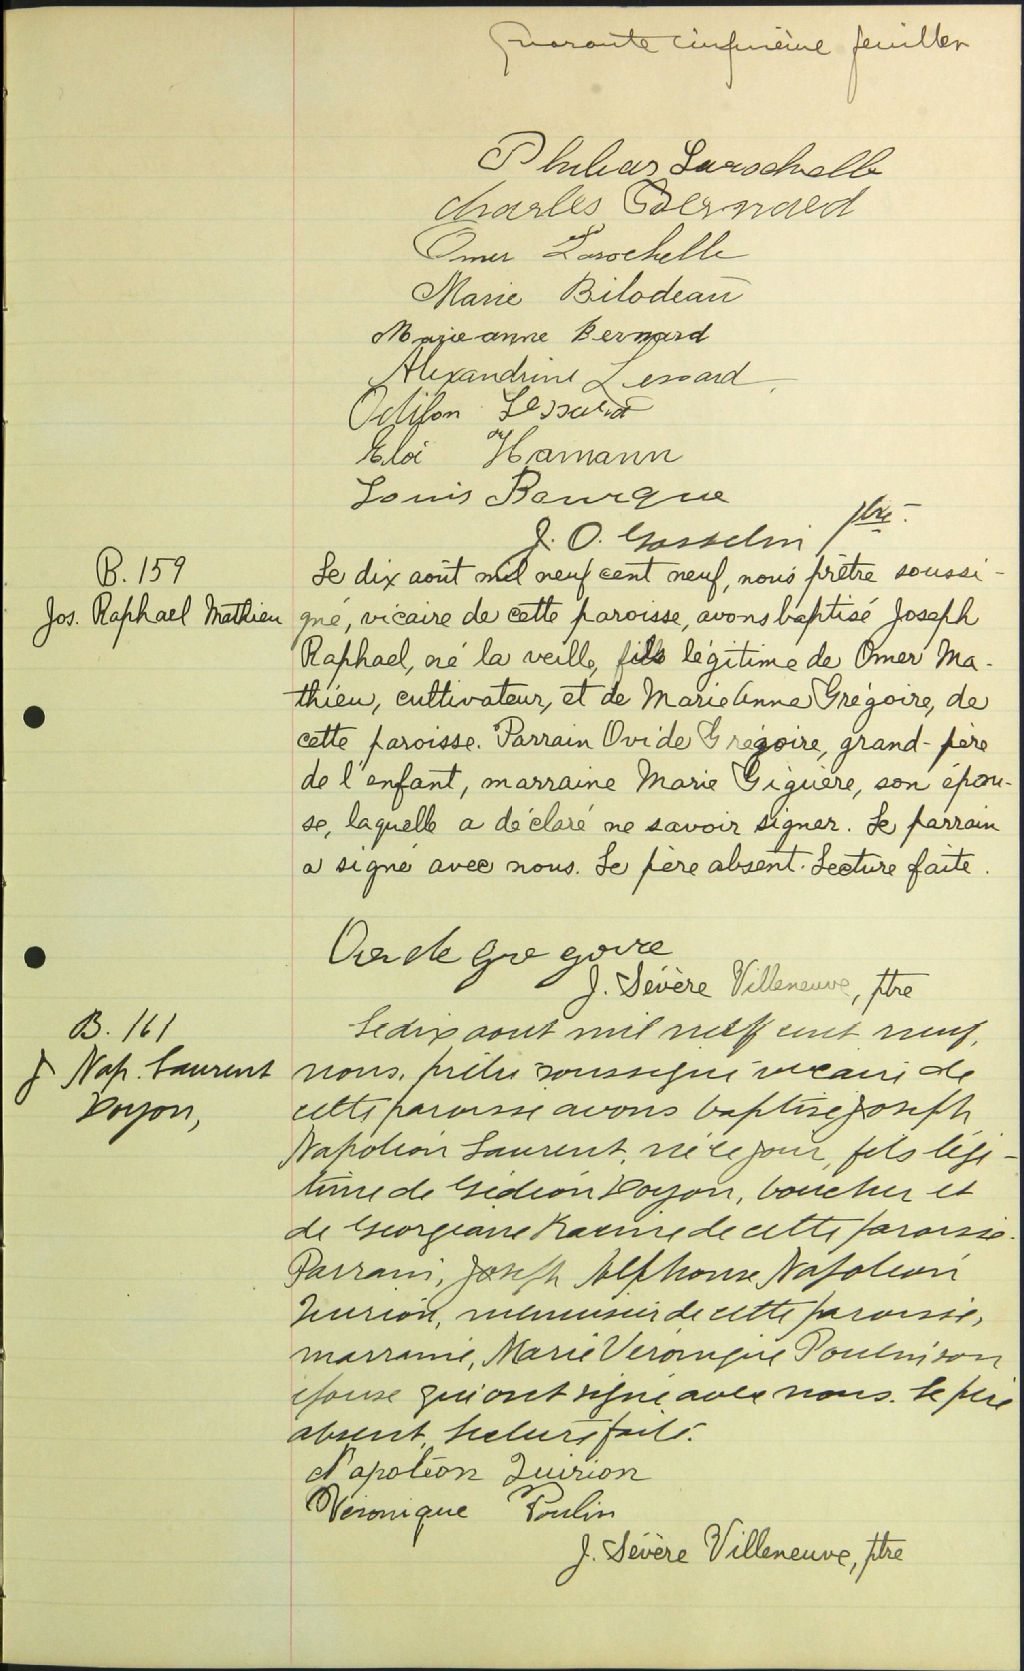 Quarante cinquième feuillet
Philias Larochelle
Charles Bernard
Omer Larochelle
Marie Bilodeau
Marie anne Bernard
Alexandrine Lessard
Odilon Lessard
Eloi Hamann
Louis Bourque
J. O. Gosselin ptre.
B. 159
Jos. Raphael Mathieu
Le dix août mil neuf cent neuf, nous prêtre soussi-
gné, vicaire de cette paroisse, avons baptisé Joseph
Raphael, né la veille, fils légitime de Omer Ma-
thieu, cultivateur, et de Marie Anna Grégoire, de
cette paroisse. Parrain Ovide Grégoire, grand-père
de l'enfant, marraine Marie Giguère, son épou-
se, laquelle a déclaré ne savoir signer. Le parrain
a signé avec nous. Le père absent. Lecture faite.
Ovide Gregoire
J. Sévère Villeneuve, ptre
B. 161
J Nap. Laurent
Doyon,
Le dix aout mil neuf cent neuf,
nous, prêtre soussigné vicaire de
cette paroisse avons baptisé Joseph
Napoléon Laurent, né ce jour, fils légi-
time de Gédéon Doyon, boucher et
de Georgiane Racine de cette paroisse.
Parrain, Joseph Alphonse Napoléon
Quirion, menuisier de cette paroisse,
marraine, Marie Véronique Poulin son
épouse qui ont signé avec nous. Le père
absent, lecture faite.
Napoléon Quirion
Véronique Poulin
J. Sévère Villeneuve, ptre